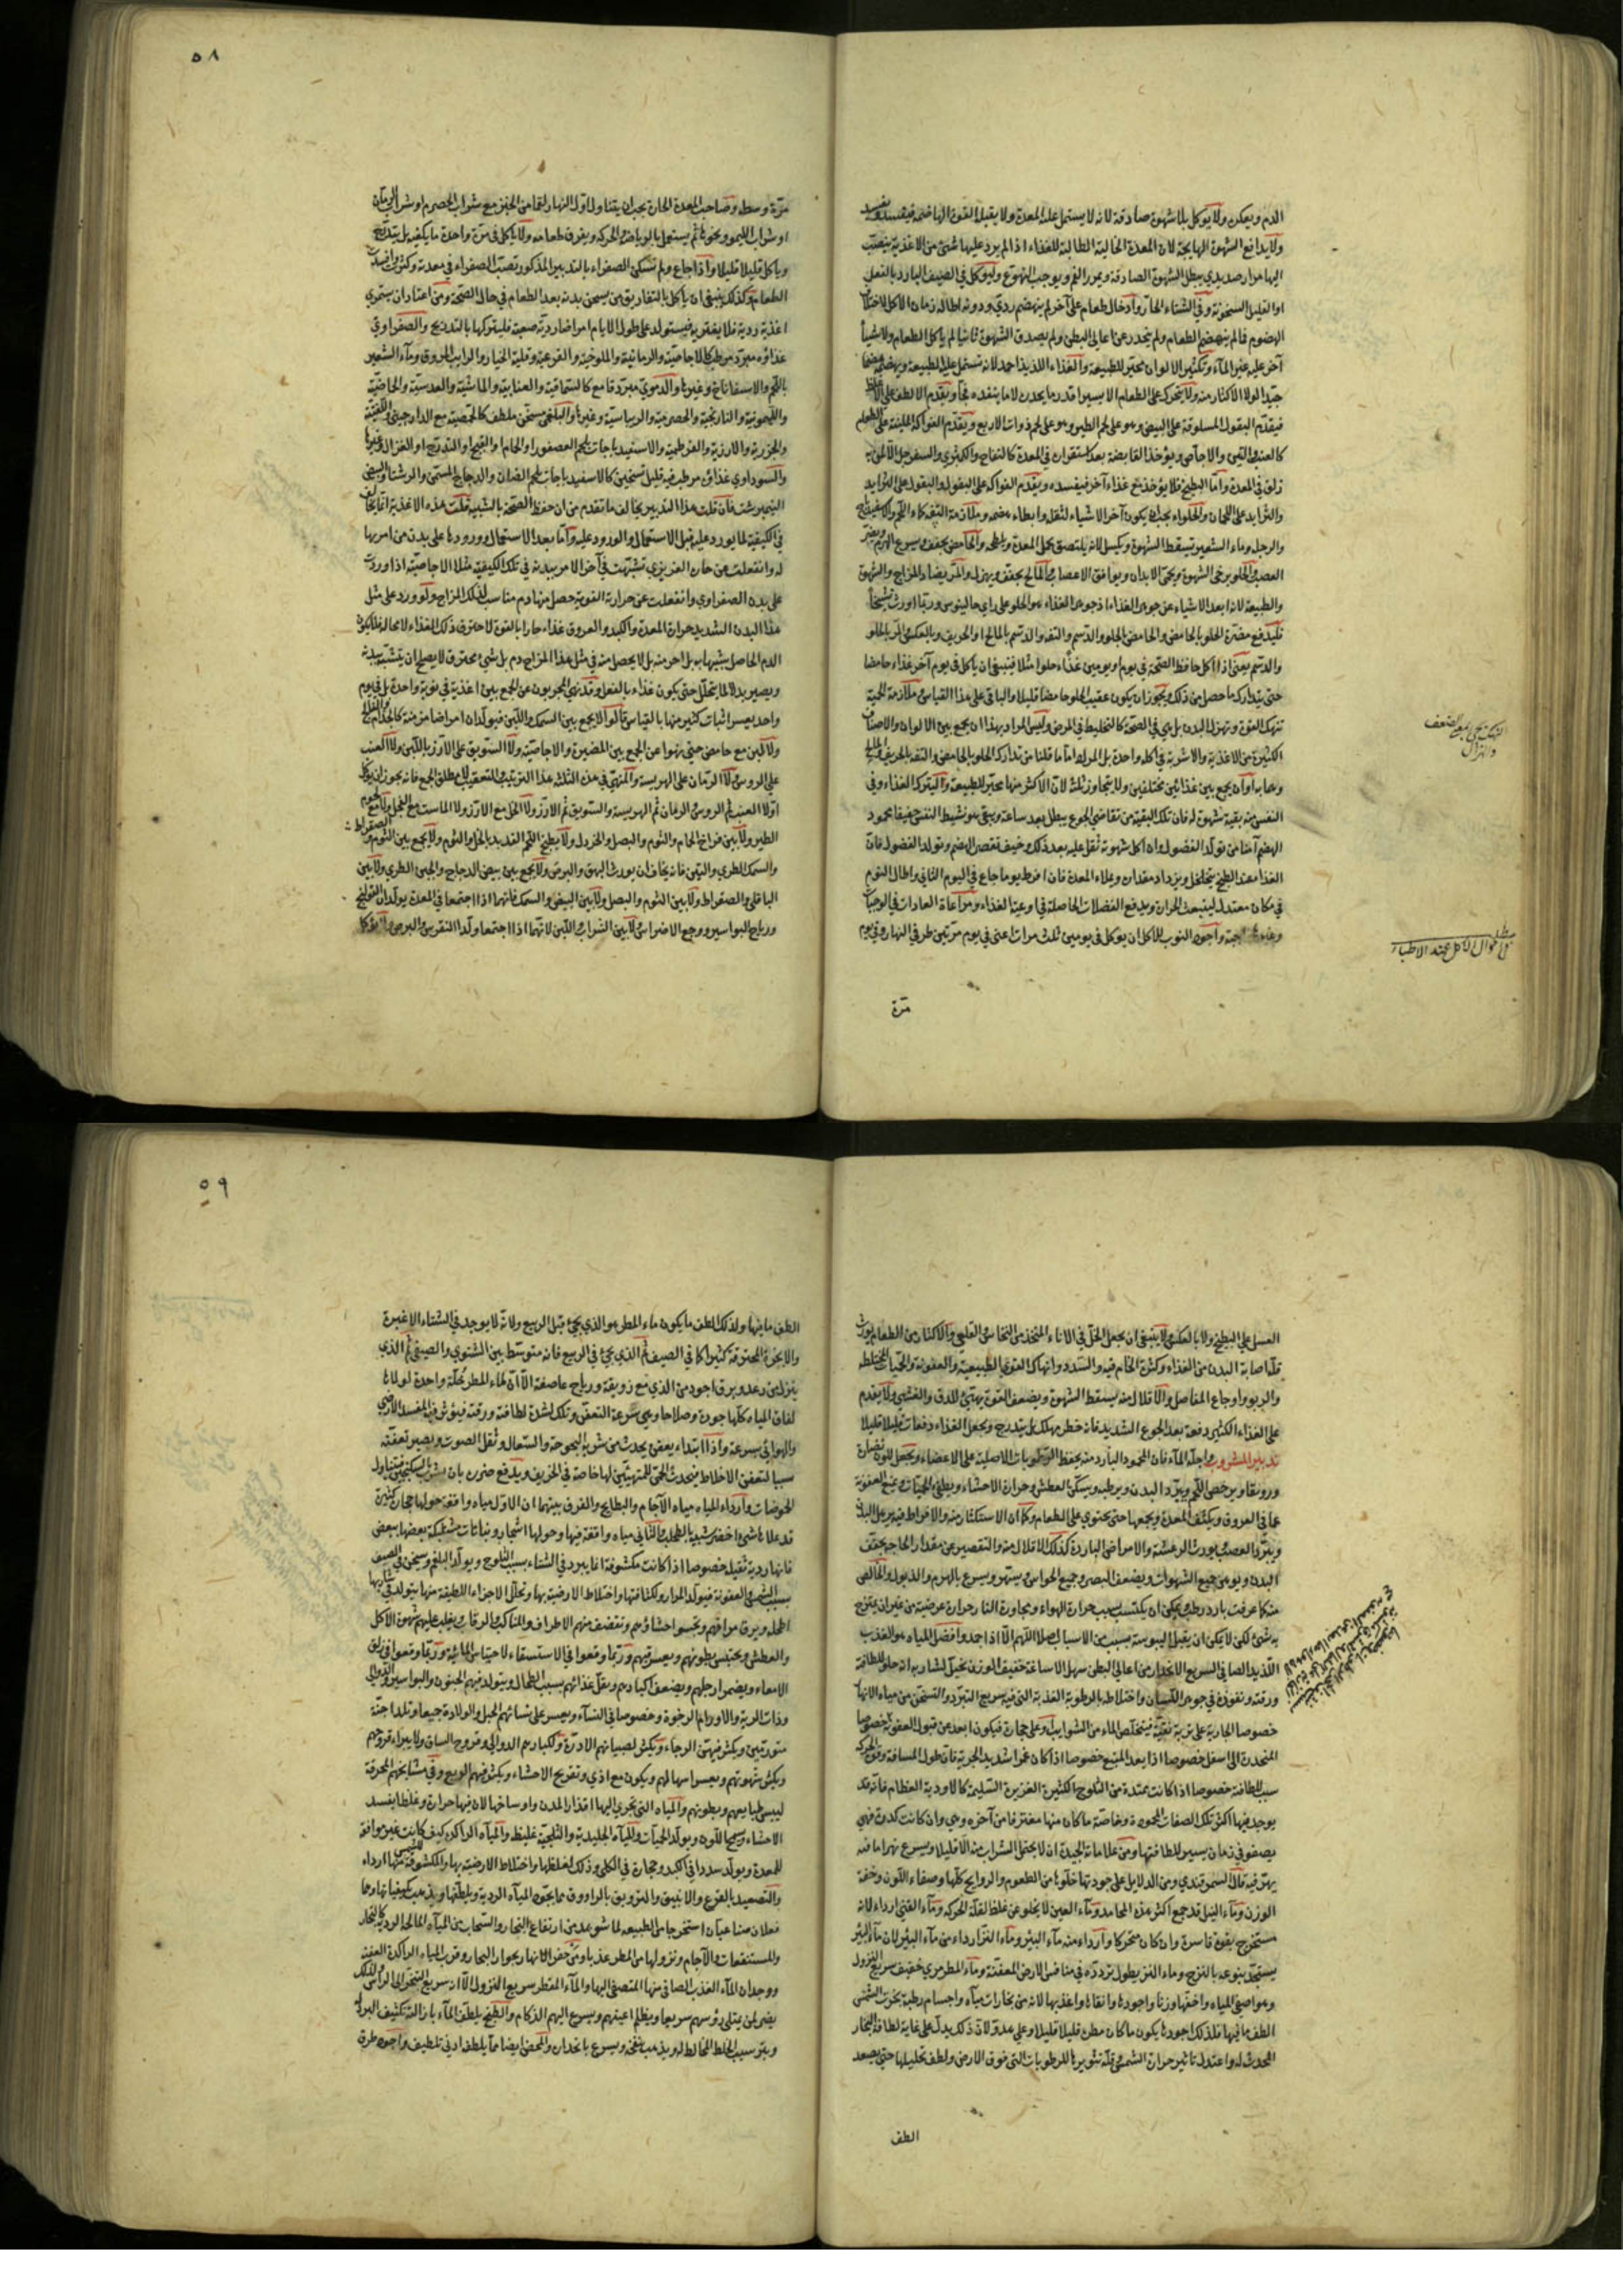 الدم ويعكن ولا يؤكل بلا شهوة صادقة لانه لا يستمل عليه المعدة ولا يقبله القوة الهاضمة فيفسد ويفسد
ولا يدافع الشهوة الهايجة لان المعدة الخالية الطالبة للغذاء اذا لم يرد عليها شئ من الاغذية ينصب
اليها مرار صديدي يبطل الشهوة الصادقة ويمرر الفم ويوجب التهوع وليؤكل في الصيف البارد بالفعل
او القليل السخونة وفي الشتاء الحار وادخال طعام على آخر لم ينهضم ردي ودونه اطالة زمان الاكل لاختلاف
الهضوم فما لم ينهضم الطعام ولم ينحدر عن اعالي البطن ولم يصدق الشهوة ثانيا لم ياكل الطعام ولا شيأ
آخر عليه غير الماء وتكثير الالوان محير للطبيعة والغذاء اللذيذ احمد لانه تشتمل عليه الطبيعة ويهضمه هضما
جيدا لولا الاكثار منه ولا يتحرك على الطعام الا يسيرا قدر ما يحدره لا ما ينفذه فجا ويقدم الالطف على الاغلظ
فيقدم البقول المسلوقة على البيض وهو على لحم الطير وهو على لحم ذوات الاربع ويقدم الفواكه الملينة على الطعام
كالعنب والتين والاجاص ويؤخذ القابضة بعد استقراره في المعدة كالتفاح والكمثري والسفرجل الا لمن به
زلق في المعدة واما البطيخ فلا يؤخذ مع غذاء آخر فيفسده ويقدم الفواكه على البقول والبقول على الثرايد
والثرايد على اللحمان والحلواء يجب ان يكون آخر الاشياء لثقله وابطاء هضمه وملازمة التفه كماء اللحم والاسفيداج
والرجلة وماء الشعير تسقط الشهوة ويكسل لانه يلتصق بخمل المعدة ويلطخه والحامض يجفف ويسرع الهرم ويضر
العصب والحلو يرخي الشهوة ويحمي الابدان ويوافق الاعصاب والمالح يجفف ويهزل والمر يضاد المزاج والشهوة
والطبيعة لانه ابعد الاشياء عن جوهر الغذاء اذ جوهر الغذاء هو الحلو على راي جالينوس وربما اورث تشنجا
فليدفع مضرة الحلو بالحامض والحامض بالحلو والدسم والتفه والدسم بالمالح او الحريف وبالعكس المر بالحلو
والدسم يعني اذا اكل حافظ الصحة في يوم او يومين غذاء حلوا مثلا فينبغي ان ياكل في يوم آخر غذاء حامضا
حتى يتدارك ما حصل من ذلك ويجوز ان يكون عقيب الحلو حامضا قليلا والباقي على هذا القياس وملازمة الحمية
تنهك القوة وتهزل البدن بل هي في الصحة كالتخليط في المرض وليس المراد بهذا ان يجمع بين الالوان والاصناف
الكثيرة من الاغذية والاشربة في اكلة واحدة بل المراد اما ما قلنا من تدارك الحلو بالحامض والتفه بالحريف والمالح
وعابه او ان يجمع بين غذائين مختلفين ولا يتجاوز ثلثة لان الاكثر منها محير للطبيعة وليترك الغذاء وفي
النفس منه بقية شهوة له فان تلك البقية من تقاضي الجوع يبطل بعد ساعة ويبقى هو نشيط النفس خفيفا محمود
الهضم آمنا من تولد الفضول وان اكل شهوته ثقل عليه بعد ذلك وخيف نقص الهضم وتولد الفضول فان
الغذاء عند الطبخ يتخلخل ويزداد مقداره ويملاء المعدة فان افرط يوما جاع في اليوم الثاني واطال النوم
في مكان معتدل لينبعث الحرارة ويدفع الفضلات الحاصلة في اوعية الغذاء ومراعاة العادات في الوجبات
واجود النوب للاكل ان يوكل في يومين ثلث مرات اعني في يوم مرتين طرفي النهار وفي يوم
مرة
النهك يجي بمعنى الضعف
والهزال
مطلب
في احوال الاكل عند الاطباء
٥٨
مرة وسطه وصاحب المعدة الحارة يجب ان يتناول اول النهار لقما من الخبز مع شراب الحصرم او شراب الرمان
او شراب الليمو ونحوها ثم يستعمل بالرياضة والحركة ويفرق طعامه ولا ياكل في مرة واحدة ما يكفيه بل يتدرج
وياكل قليلا قليلا واذا جاع ولم تسكن الصفراء بالتدبير المذكور تصبت الصفراء في معدته وكثرت وافسدت
الطعام وكذلك ينبغي ان ياكل بالتفاريق من يسخن بدنه بعد الطعام في حال الصحة ومن اعتاد ان يستمري
اغذية ردية فلا يغتر به فيستولد على طول الايام امراضا ردية صعبة فليتركها بالتدريج والصفراوي
غذاؤه مبرد مرطب كالاجاصية والرمانية والملوخية والقرعية وقلية الخيار والرايب المحروق وماء الشعير
باللحم والاسفاناخ وغيرها والدموي مبرد قامع كالسماقية والعنابية والماشية والعدسية والحماضية
والليمونية والنارنجية والحصرمية والريباسية وغيرها والبلغمي مسخن ملطف كالحمصية مع الدارچيني واللفتية
والجزرية والارزية والقرطمية والاسفيدباجات بلحم العصفور او الحمام والقبج او التدرج او الغزال وغيرها
والسوداوي غذاؤه مرطب فيه قليل تسخين كالاسفيدباجات بلحم الضان والدجاج المسمن والرشتا والبيض
النيمبرشت فان قلت هذا التدبير يخالف ما تقدم من ان حفظ الصحة بالشبيه قلت هذه الاغذية انما يخالف
في الكيفية لما يورد عليه قبل الاستعمال والورود عليه واما بعد الاستعمال وورودها على بدن من امر بها
له وانفعلت عن حاره الغريزي تشبهت في آخر الامر ببدنه في تلك الكيفية مثلا الاجاصية اذا وردت
على بدن الصفراوي وانفعلت عن حرارته القوية حصل منها دم مناسب لذلك المزاج ولو ورد على مثل
هذا البدن الشديد حرارة المعدة والكبد والعروق غذاء حار بالقوة لاحترق ذلك الغذاء لا محالة فلا يكون
الدم الحاصل شبيها به بل احر منه بل لا يحصل منه في مثل هذا المزاج دم بل شئ محترق لا يصلح ان يتشبه ببدنه
ويصير بدلا لما يتحلل حتى يكون غذاء بالفعل وقد نهى المجربون عن الجمع بين اغذية في نوبة واحدة بل في يوم
واحد يعسر اثبات كثير منها بالقياس قالوا لا يجمع بين السمك واللبن فيولدان امراضا مزمنة كالجذام والفالج
ولا لبن مع حامض حتى نهوا عن الجمع بين المضيرة والاجاصية ولا السويق على الارز باللبن ولا العنب
على الروس ولا الرمان على الهريسة والمنهي في هذه الثلثة هذا الترتيب والتعقيب لا مطلق الجمع فانه يجوز ان يؤكل
اولا العنب ثم الروس والرمان ثم الهريسة والسويق ثم الارز ولا الخل مع الارز ولا الماست مع الفجل ولا مع لحوم
الطير ولا بين فراخ الحمام والثوم والبصل والخردل ولا يطبخ اللحم القديد بالخل والثوم ولا يجمع بين الثوم والصقراط
والسمك الطري والتين فانه يخاف ان يورث البهق والبرص ولا يجمع بين بيض الدجاج والجبن الطري ولا بين
الباقلي والصقراط ولا بين الثوم والبصل ولا بين البيض والسمك فانهما اذا اجتمعا في المعدة يولدان القولنج
ورياح البواسير ووجع الاضراس ولا بين الشراب واللبن لانهما اذا اجتمعا ولدا النقرس والبرص
العسل على البطيخ ولا بالعكس ولا ينبغي ان يجعل الخل في الاناء المتخذ من النحاس القلعي والاكثار من الطعام يورث
قلة اصابة البدن من الغذاء وكثرة الخام فيه والسدد وانهاك القوي الطبيعية والعفونة والحميات المختلطة
والربو واوجاع المفاصل والاقلال منه يسقط الشهوة ويضعف القوة ويهيئ للدق والغشي ولا يقدم
على الغذاء الكثير دفعة بعد الجوع الشديد فانه خطر مهلك بل يتدرج ويجعل الغذاء دفعات قليلا قليلا
تدبير المشروب واجله الماء فان المحمود البارد منه يحفظ الرطوبات الاصلية على الاعضاء ويجعل للون نضارة
ورونقا ويرخص اللحم ويبرد البدن ويرطبه ويسكن العطش وحرارة الاحشاء ويطفئ الحميات ويمنع العفونة
عما في العروق ويكثف المعدة ويجمعها حتى يحتوي على الطعام وكما ان الاستكثار منه والافراط فيه يرهل البدن
ويبرد العصب ويورث الرعشة والامراض الباردة كذلك الاقلال منه والتقصير عن مقدار الحاجة يجفف
البدن ويوهن جميع الشهوات ويضعف البصر وجميع الحواس ويسهر ويسرع بالهرم والذبول والخالص
منه كما عرفت بارد رطب ويمكن ان يكتسب بسبب حرارة الهواء ومجاورة النار حرارة عرضية من غير ان يمتزج
به شئ لكن لا يمكن ان يقبل اليبوسة بسبب من الاسباب اصلا اللهم الا اذا جمد وافضل المياه هو العذب
اللذيذ الصافي السريع الانحدار من اعالي البطن سهل الاساغة خفيف الوزن يخيل لشاربه انه حلو للطافة
ورقته ونفوذه في جوهر اللسان واختلاطه بالرطوبة العذبة التي فيه سريع التبرد والتسخن من مياه الانهار
خصوصا الجارية على تربة نقية فيتخلص الماء من الشوايب وعلى حجارة فيكون ابعد عن قبول العفونة خصوصا
المنحدرة الى اسفل خصوصا اذا بعد المنبع خصوصا اذا كان غمرا شديد الجرية فان طول المسافة وقوة الحركة
سبب للطافته خصوصا اذا كانت ممتدة من الثلوج الكثيرة الغزيرة السليمة كالاودية العظام فانه قد
يوجد فيها اكثر تلك الصفات المحمودة وخاصة ما كان منها مغترفا من آخره وهي وان كانت كدرة فهي
يصفو في زمان يسير للطافتها ومن علاماته الجيدة ان لا يحتمل الشراب منه الا قليلا ويسرع تهرا ما فيه
يهري فيه قال السمرقندي ومن الدلايل على جودتها خلوها من الطعوم والروايح كلها وصفاء اللون وخفة
الوزن وماء النيل قد جمع اكثر هذه المحامد وماء العين لا يخلو عن غلظ لقلة الحركة وماء القني ارداء لانه
مستخرج بقوة قاسرة وان كان متحركا وارداء منه ماء البئر وماء النز ارداء من ماء البئر لان ماء البئر
يستجد ينبوعه بالنزح وماء النز يطول تردده في منافس الارض المعفنة وماء المطر مري خفيف سريع النزول
وهو اصفي المياه واخفها وزنا واجودها وانقاها واعذبها لانه من بخارات مياه واجسام رطبة بخرت الشمس
الطف ما فيها فلذلك اجودها يكون ما كان مطره قليلا قليلا وعلى هدو لان ذلك يدل على غاية لطافة البخار
المحدث له واعتدال تاثير حرارة الشمس وقلة تثويرها للرطوبات التي فوق الارض ولطف تحليلها حتى يصعد
الطف
٥٩
الطف ما فيها ولذلك الطف ما يكون ماء المطر هو الذي يجئ قبل الربيع ولانه لا يوجد في الشتاء الاغبرة
والابخرة المحترقة كثيرا كما في الصيف ثم الذي يجئ في الربيع فانه متوسط بين الشتوي والصيفي ثم الذي
ينزل من رعد وبرق اجود من الذي مع زوبعة ورياح عاصفة الا ان لماء المطر خلة واحدة لولاها
لفاق المياه كلها جودة وصلاحا وهي سرعة التعفن وتلك لشدة لطافته ورقته فيؤثر فيه المفسد الارضي
والهوائي بسرعة واذا ابتداء يعفن يحدث من شربه البحوحة والسعال وثقل الصوت ويصير تعفنه
سببا لتعفن الاخلاط فيحدث الحمى للمتهيئين لها خاصة في الخريف ويدفع ضرره بان يشرب بالسكنجبين ويتناول
الحموضات وارداء المياه مياه الآجام والبطايح والفرق بينهما ان الاول مياه واقفة حولها حجارة كثيرة
قد علاها شئ اخضر شبيه بالطحلب والثاني مياه واقفة فيها وحولها اشجار ونباتات مشتبكة بعضها ببعض
فانها ردية ثقيلة خصوصا اذا كانت مكشوفة انما يبرد في الشتاء بسبب الثلوج ويولد البلغم ويسخن في الصيف
بسبب الشمس والعفونة فيولد المرار ولكثافتها واختلاط الارضية بها وتحلل الاجزاء اللطيفة منها يتولد في شاربها
اطحلة ويرق مراقهم ويحسو احشاؤهم وتقضف منهم الاطراف والمناكب والرقاب ويغلب عليهم شهوة الاكل
والعطش ويحتبس بطونهم ويعسر قيهم وربما وقعوا في الاستسقاء لاحتباس المائية وربما وقعوا في زلق
الامعاء ويضمر ارجلهم ويضعف اكبادهم ويقل غذائهم بسبب الطحال ويتولد فيهم الجنون والبواسير والدوالي
وذات الرية والاورام الرخوة وخصوصا في النساء ويعسر على نسائهم الحبل والولادة جميعا وتلد اجنة
متورمين ويكثر فيهن الرجاء ويكثر لصبيانهم الادرة ولكبارهم الدوالي وقروح الساق ولا يبراء قروحهم
ويكثر شهوتهم ويعسر اسهالهم ويكون مع اذي وتقريح الاحشاء ويكثر فيهم الربع وفي مشايخهم المحرقة
ليبس طبايعهم وبطونهم والمياه التي يجري اليها اقذار المدن واوساخها لان فيها حرارة وغلظا يفسد
الاحشاء ويسمج اللون ويولد الحميات والمياه الجليدية والثلجية غليظ والمياه الراكدة كيف كانت غير موافقة
للمعدة ويولد سددا في الكبد وحجارة في الكلي وذلك لغلظها واختلاط الارضية بها والمكشوفة للشمس منها ارداء
والتصعيد بالقرع والانبيق والترويق بالراووق مما يجود المياه الردية ويلطفها ويذهب كيفياتها وهما
فعلان صناعيان استخرجا من الطبيعة لما شوهد من ارتفاع البخار والسحاب من المياه المالحة الردية كالبحار
والمستنقعات والآجام ونزولها من المطر عذبا ومن حفر الانهار بجوار البحار وقرب المياه الراكدة العفنة
ووجدان الماء العذب الصافي منها المتصفي اليها والماء المقطر سريع النزول الا انه سريع التبخر الى الراس ولذلك
يضر لمن يمتلي رؤسهم سريعا ويظلم اعينهم ويسرع اليهم الزكام والطبخ يلطف الماء بازالته تكثيف البرد